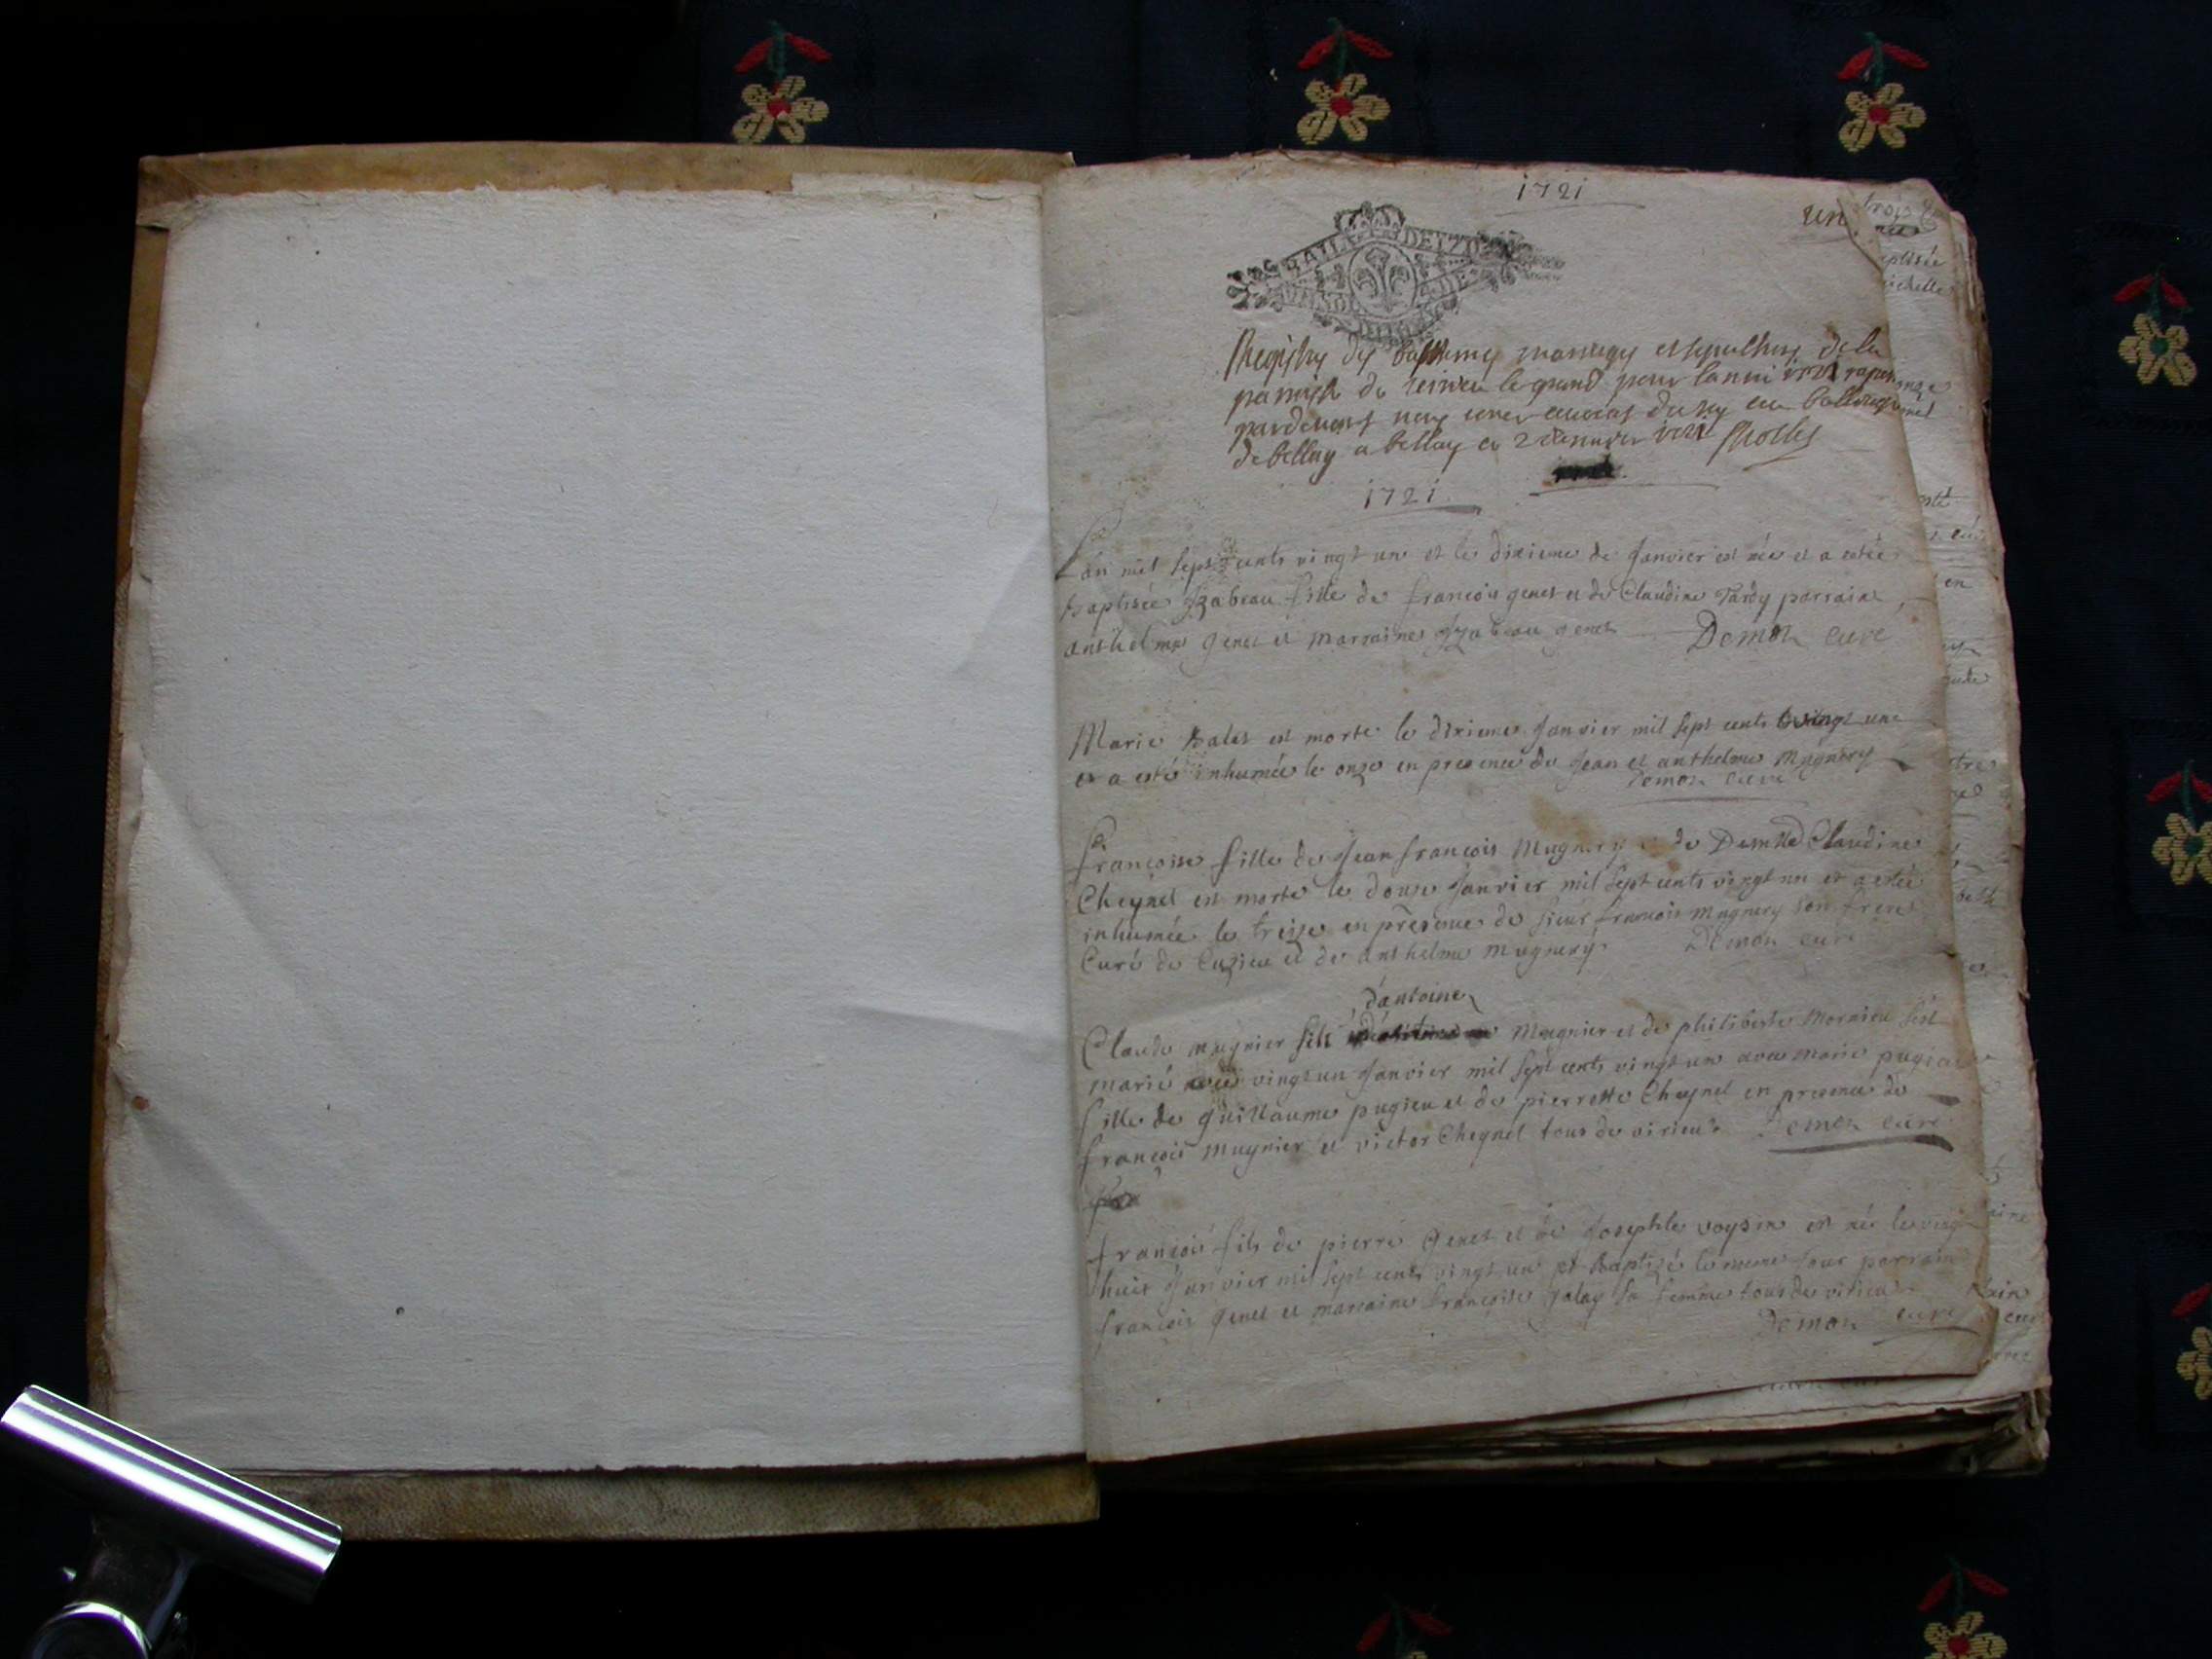 1721
un
trois
née
baptisée
michelle
DE 1720
Registre des baptemes mariages et sepultures de la
paroisse de virieu le grand pour lannee 1721
pardevant nous
de bellay a bellay ce 2 Janvier 1721
1721
Lan mil sept cents vingt un et le dixieme de Janvier est née et a estée
baptisée Izabeau fille de francois genet et de Claudine Tardy parrain
anthelme genet et marraine Izabeau genet Demon cure
Marie balet est morte le dixieme Janvier mil sept cents vingt un
et a esté inhumée le onze en presence de Jean et anthelme Mugnery
Demon cure
francoise fille de Jean francois Mugnery et de Demlle Claudine
Cheynel est morte le douze Janvier mil sept cents vingt un et a estée
inhumée le treize en presence de sieur francois mugnery son frere
Curé de Cuzieu et de anthelme mugnery Demon curé
d'antoine
Claude mugnier fils Mugnier et de philiberte Mornieu sest
marié vingt un Janvier mil sept cents vingt un avec marie pugieu
fille de guillaume pugieu et de pierrette Cheynel en presence de
françois mugnier et victor Cheynel tous de virieu Demon cure
françois fils de pierre Genet et de Josephte voysin est né le vingt
huit Janvier mil sept cents vingt un et baptizé le meme jour parrain
francois genet et marraine françoise galay sa femme tous de virieu
Demon cure